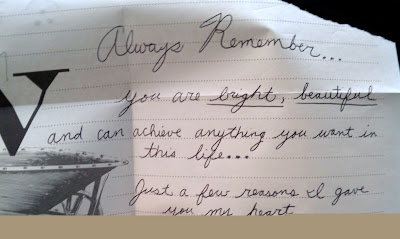 Always Remember...
V
you are bright, beautiful
and can achieve anything you want in
this life...
Just a few reasons I gave
you my heart